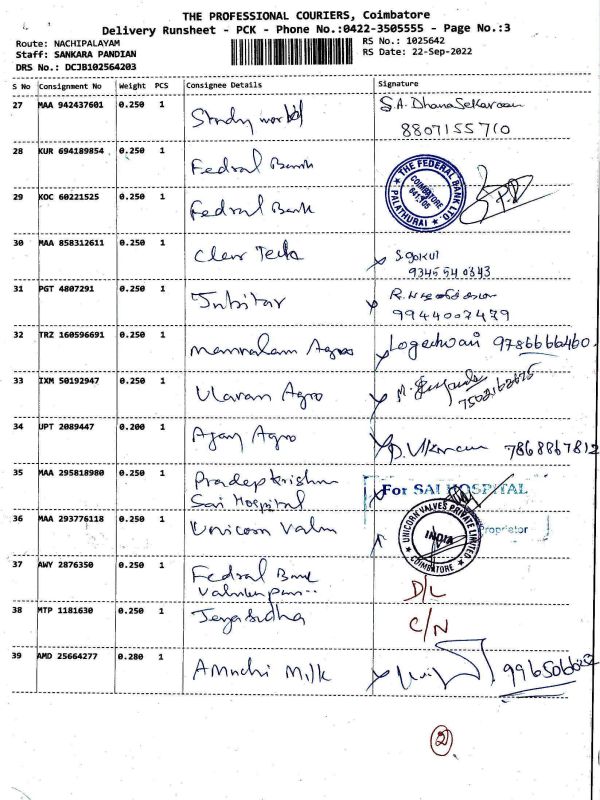 THE PROFESSIONAL COURIERS, Coimbatore
Delivery Runsheet - PCK - Phone No.:0422-3505555 - Page No.:3
Route: NACHIPALAYAM
RS No.: 1025642
Staff: SANKARA PANDIAN
RS Date: 22-Sep-2022
DRS No.: DCJB102564203
S No Consignment No Weight PCS Consignee Details Signature
27 MAA 942437601 0.250 1 Study world S.A. DhanaSekaraan
8807155710
28 KUR 694189854 0.250 1 Fedral Bank
THE FEDERAL BANK LTD.
COIMBATORE
641 105
PALATHURAI
29 KOC 60221525 0.250 1 Fedral Bank
30 MAA 858312611 0.250 1 Clear Teck S. gokul
9345540343
31 PGT 4807291 0.250 1 Jubitar R.
9944007479
32 TRZ 160596691 0.250 1 Agros 9786666460
33 IXM 50192947 0.250 1 Ulavan Agro M.
7502162675
34 UPT 2089447 0.200 1 Ajay Agro 7868867812
35 MAA 295818980 0.250 1 Pradep krishna
Sai Hospital For SAI HOSPITAL
Proprietor
36 MAA 293776118 0.250 1 Unicorn Valve
UNICORN VALVES PRIVATE LIMITED
INDIA
COIMBATORE
37 AWY 2876350 0.250 1 Fedral Bank D/L
38 MTP 1181630 0.250 1 C/N
39 AMD 25664277 0.280 1 Amuchi Milk
2